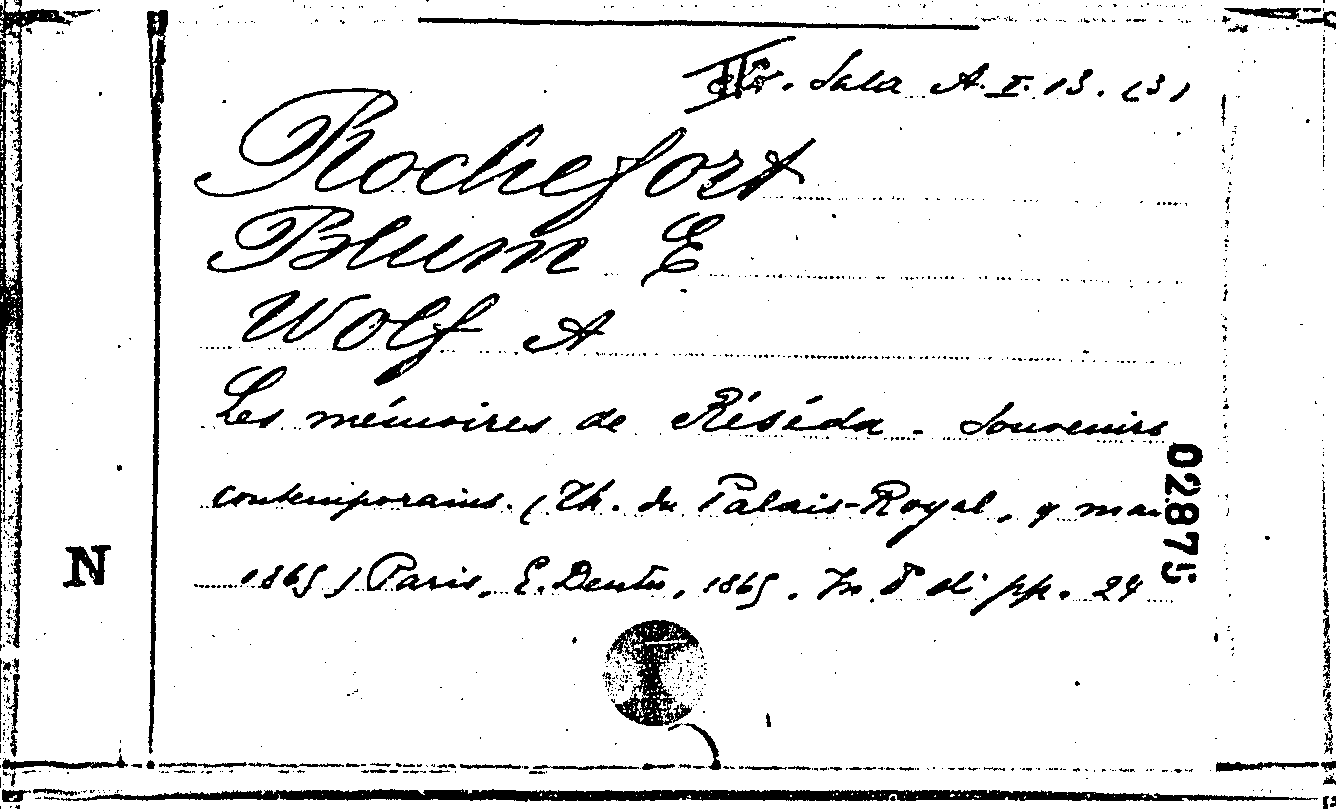 Sala A. I. 13. (3)
Rochefort
Blum E
Wolf A
Les mémoires de Réséda. Souvenirs
contemporains. (Th. du Palais-Royal, 9 mar
1865) Paris, E. Dentu, 1865. In 8° di pp. 24
02875
N